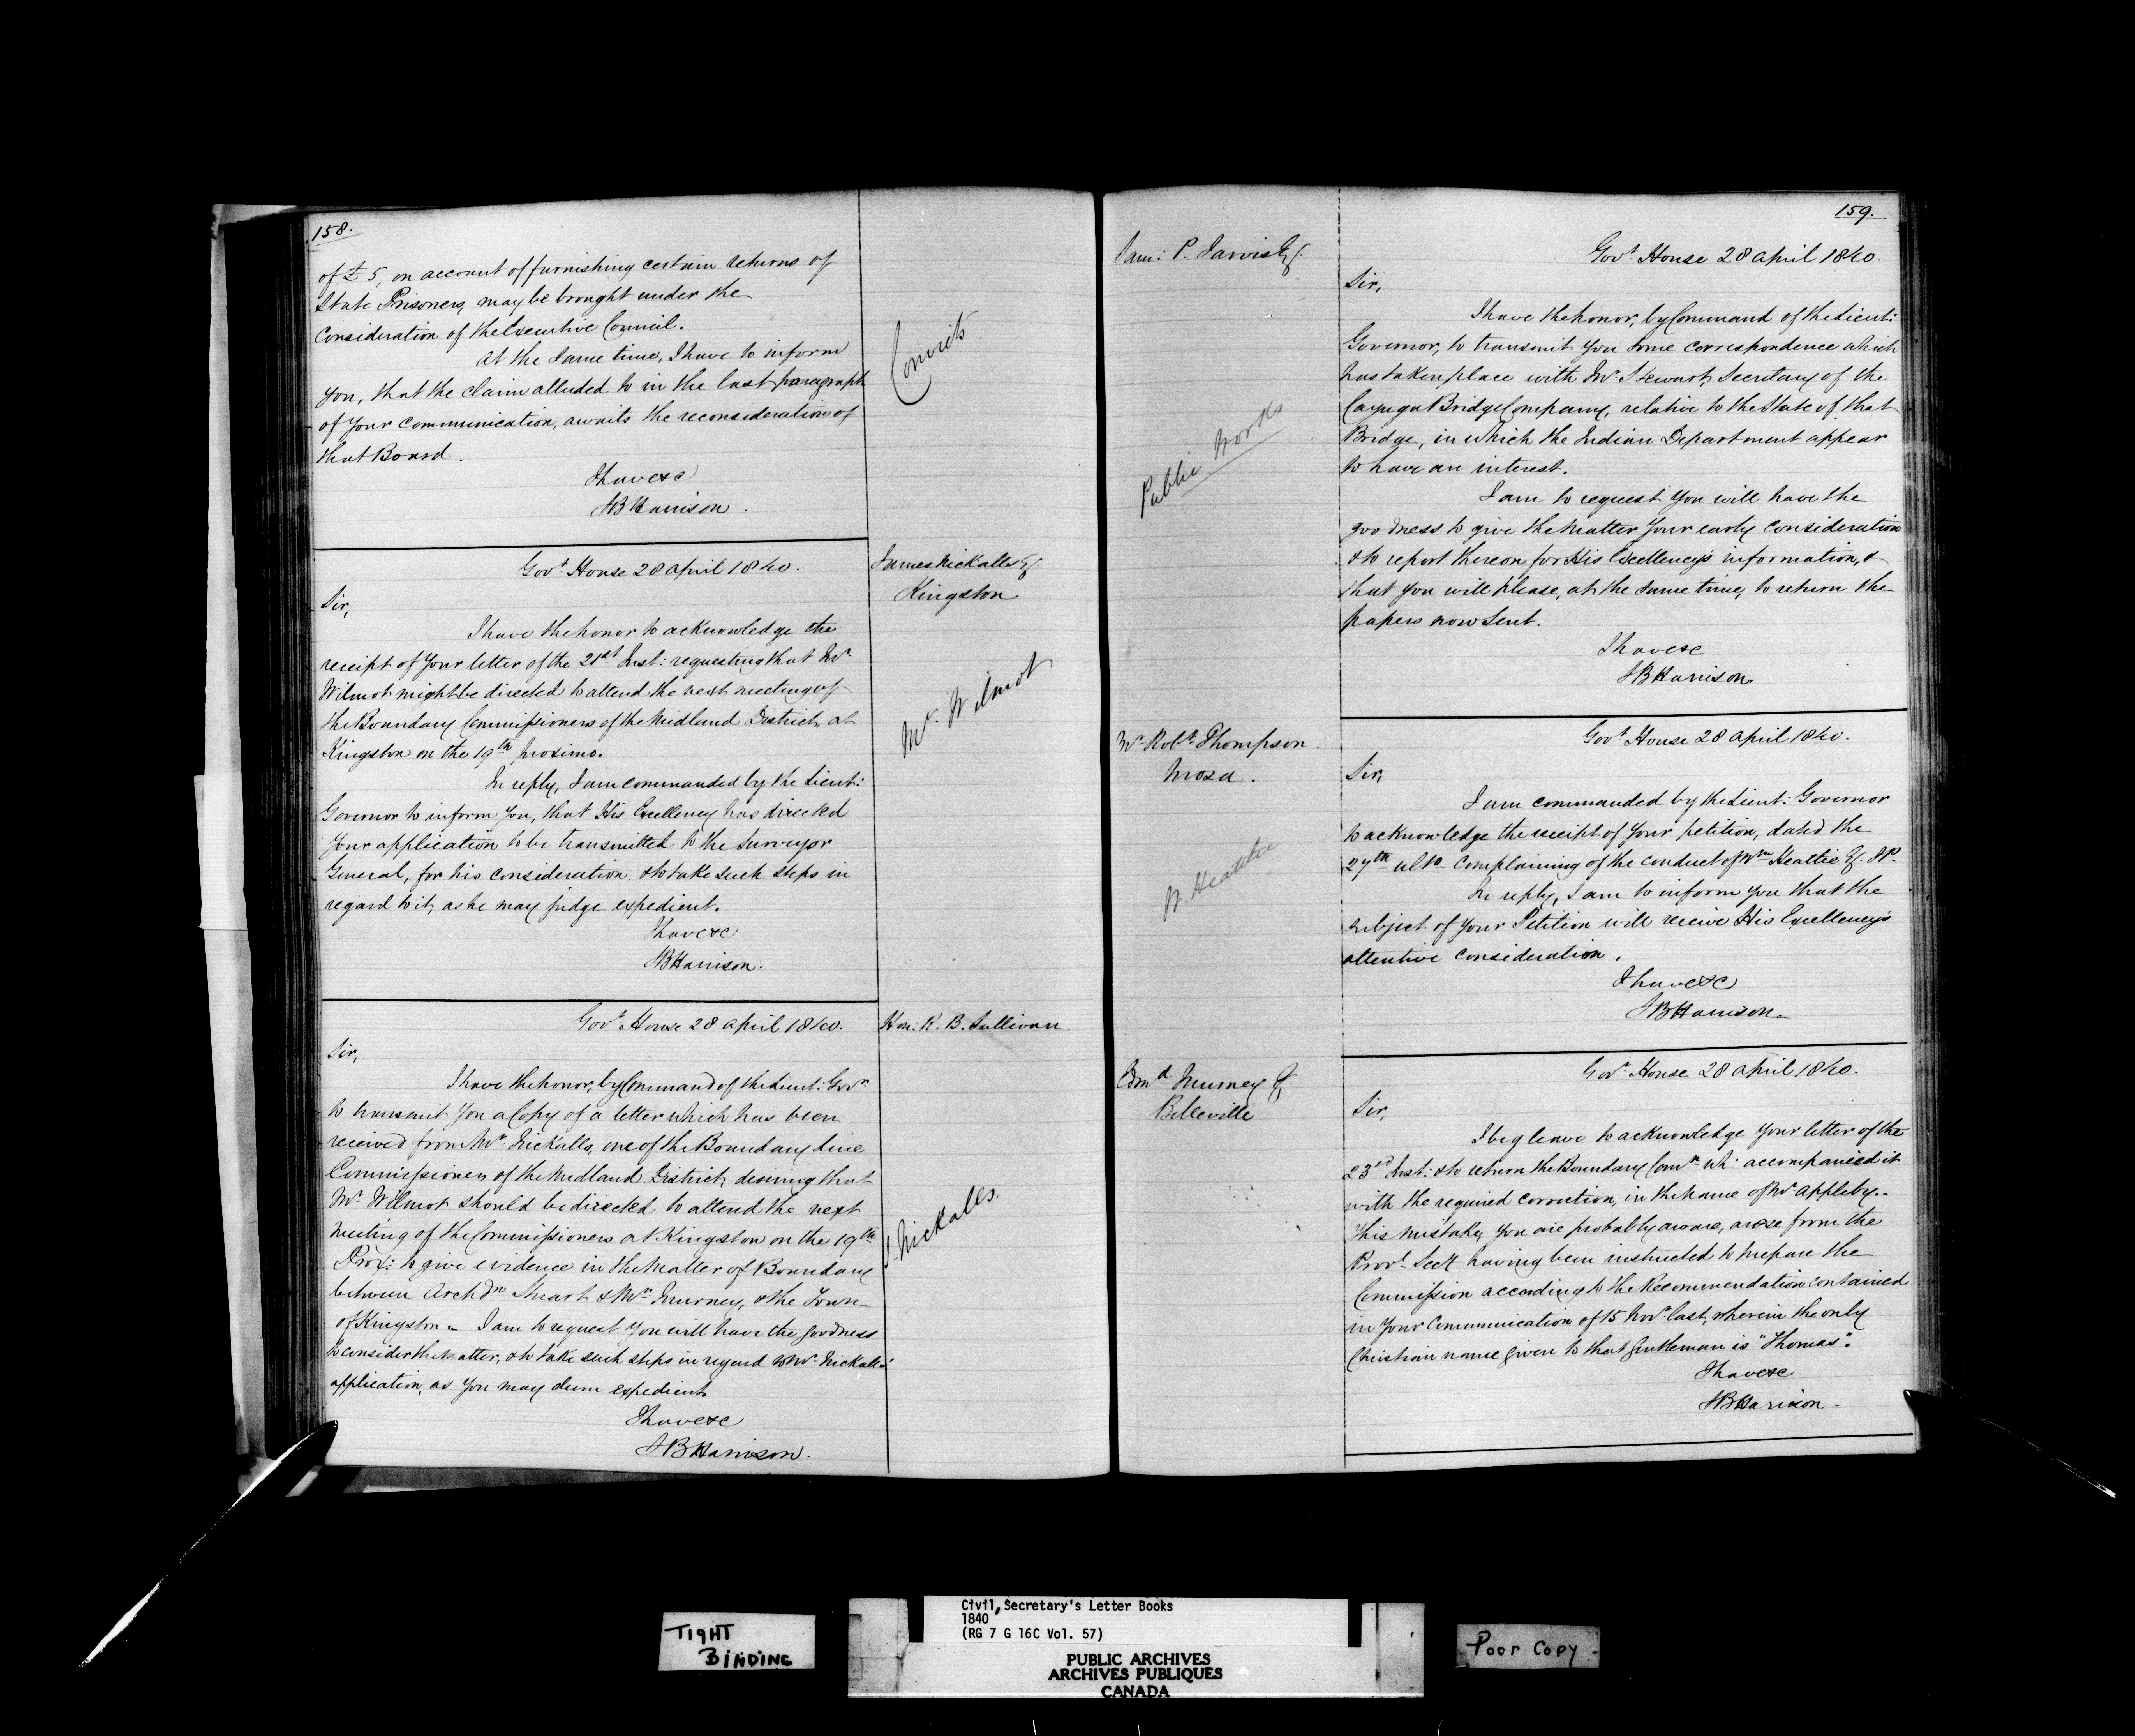 158.
of £5, on account of furnishing certain returns of
State Prisoners, may be brought under the
consideration of the Executive Council.
At the same time, I have to inform
you, that the claim alluded to in the last paragraph
of your communication, awaits the reconsideration of
that Board.
I have &c
SB Harrison.
Convicts
Govt. House 28 April 1840.
James Nickalls Esq.
Kingston
Sir,
I have the honor to acknowledge the
receipt of your letter of the 21st Inst: requesting that Mr.
Wilmot might be directed to attend the next meeting of
the Boundary Commissioners of the Midland District, at
Kingston on the 19th proximo.
In reply, I am commanded by the Lieut:
Governor to inform you, that His Excellency has directed
your application to be transmitted to the Surveyor
General, for his consideration & to take such steps in
regard to it, as he may judge expedient.
I have &c
SB Harrison.
Mr. Wilmot
Govt. House 28 April 1840.
Hon. R. B. Sullivan
Sir,
I have the honor, by Command of the Lieut: Govr.
to transmit you a Copy of a letter which has been
received from Mr. Nickalls, one of the Boundary Line
Commissioners of the Midland District, desiring that
Mr. Wilmot should be directed to attend the next
meeting of the Commissioners at Kingston on the 19th
Prox: to give evidence in the matter of Boundary
between Archdn. Stuart & Mrs. Murney, & the Town
of Kingston. - I am to request you will have the goodness
to consider the matter, & to take such steps in regard to Mr. Nickalls'
application, as you may deem expedient
I have &c
SB Harrison.
J. Nickalls.
159.
Sam: P. Jarvis Esq.
Govt. House 28 April 1840.
Sir,
I have the honor, by Command of the Lieut:
Governor, to transmit you some correspondence which
has taken place with Mr. Stewart, Secretary of the
Cayuga Bridge Company, relative to the State of that
Bridge, in which the Indian Department appear
to have an interest.
I am to request you will have the
goodness to give the matter your early consideration
& to report thereon for His Excellency's information, &
that you will please, at the same time, to return the
papers now sent.
I have &c
SB Harrison.
Public Works
Mr. Robt. Thompson.
Mosa.
Govt. House 28 April 1840.
Sir,
I am commanded by the Lieut: Governor
to acknowledge the receipt of your petition, dated the
27th ulto. complaining of the conduct of Wm. Heattie Esq. JP.
In reply, I am to inform you that the
subject of your Petition will receive His Excellency's
attentive consideration.
I have &c
SB Harrison.
Edmd. Murney Esq
Belleville
Govt. House 28 April 1840.
Sir,
I beg leave to acknowledge your letter of the
23rd Inst: & to return the Boundary Comn. wh: accompanied it
with the required correction, in the name of Mr. Appleby. -
This mistake, you are probably aware, arose from the
Provl. Secy having been instructed to prepare the
Commission according to the Recommendation contained
in your Communication of 15 Novr. last, wherein the only
Christian name given to that Gentleman is "Thomas".
I have &c
SB Harrison.
TIGHT
BINDING
Civil Secretary's Letter Books
1840
(RG 7 G 16C Vol. 57)
PUBLIC ARCHIVES
ARCHIVES PUBLIQUES
CANADA
Poor Copy